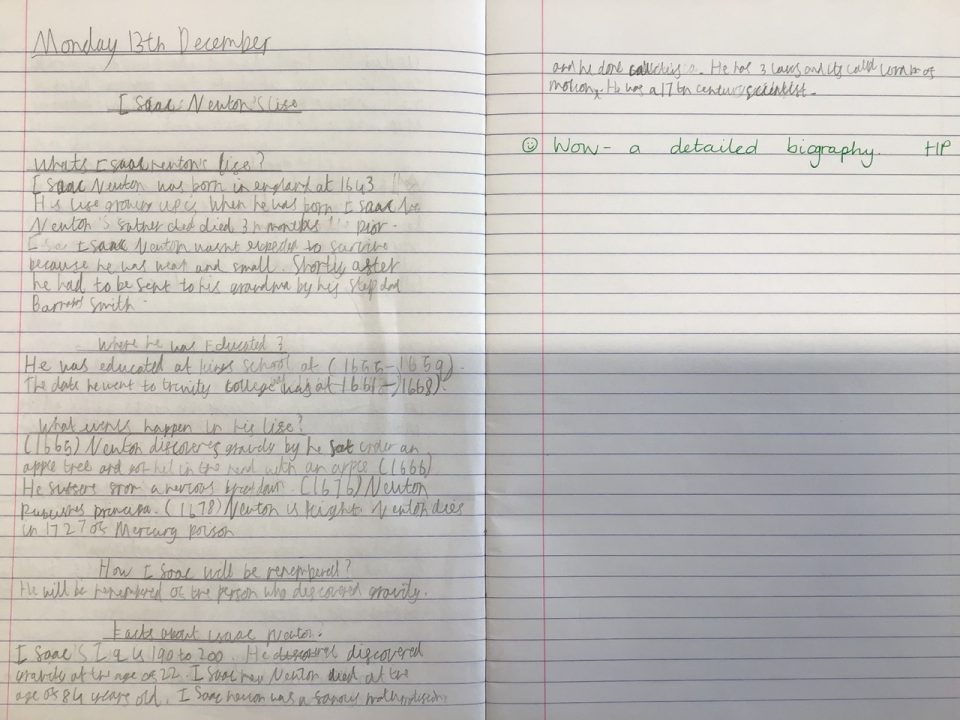 Monday 13th December
Isaac Newton's lise
Whats Isaac newton's lise?
Isaac Newton was born in england at 1643
His lise when he was born Isaac
Newton's sather died died 3 months prior.
Isaac Newton wasnt to survive
because he was weak and small. Shortly aster
he had to be sent to his grandma by his step dad
Smith.
Where he was Educated?
He was educated at kings school at (1655-1659).
The date he went to trinity college was at 1661-1668).
What events happen in his lise?
(1665) Newton discovers gravity by he sat under an
apple tree and in the head with an apple (1666)
He sussers srom a nervous . (1676) Newton
. (1678) Newton is . Newton dies
in 1727 os Mercury poison
How Isaac will be remembered?
He will be os the person who discovered gravity.
Facts about isaac Newton.
Isaac's IQ is 190 to 200. He discovered
gravity at the age os 22. Isaac Newton died at the
age os 84 years old. Isaac was a samous
and he done . He has 3 laws and its calld os
motion. He was a 17th century scientist.
☺ Wow - a detailed biography. HP